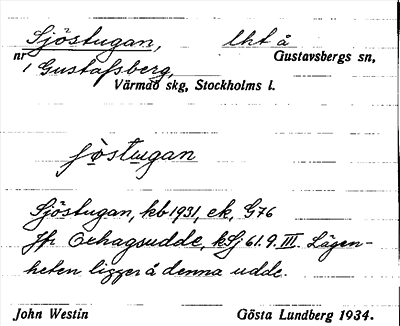 Sjöstugan, lht å
nr 1 Gustafsberg, Gustavsbergs sn,
Värmdö skg, Stockholms l.
ſöstugan
Sjöstugan, kb 1931, ek, G76
Jfr Ekhagsudde, kSj 61.9.III. Lägen-
heten ligger å denna udde.
John Westin Gösta Lundberg 1934.